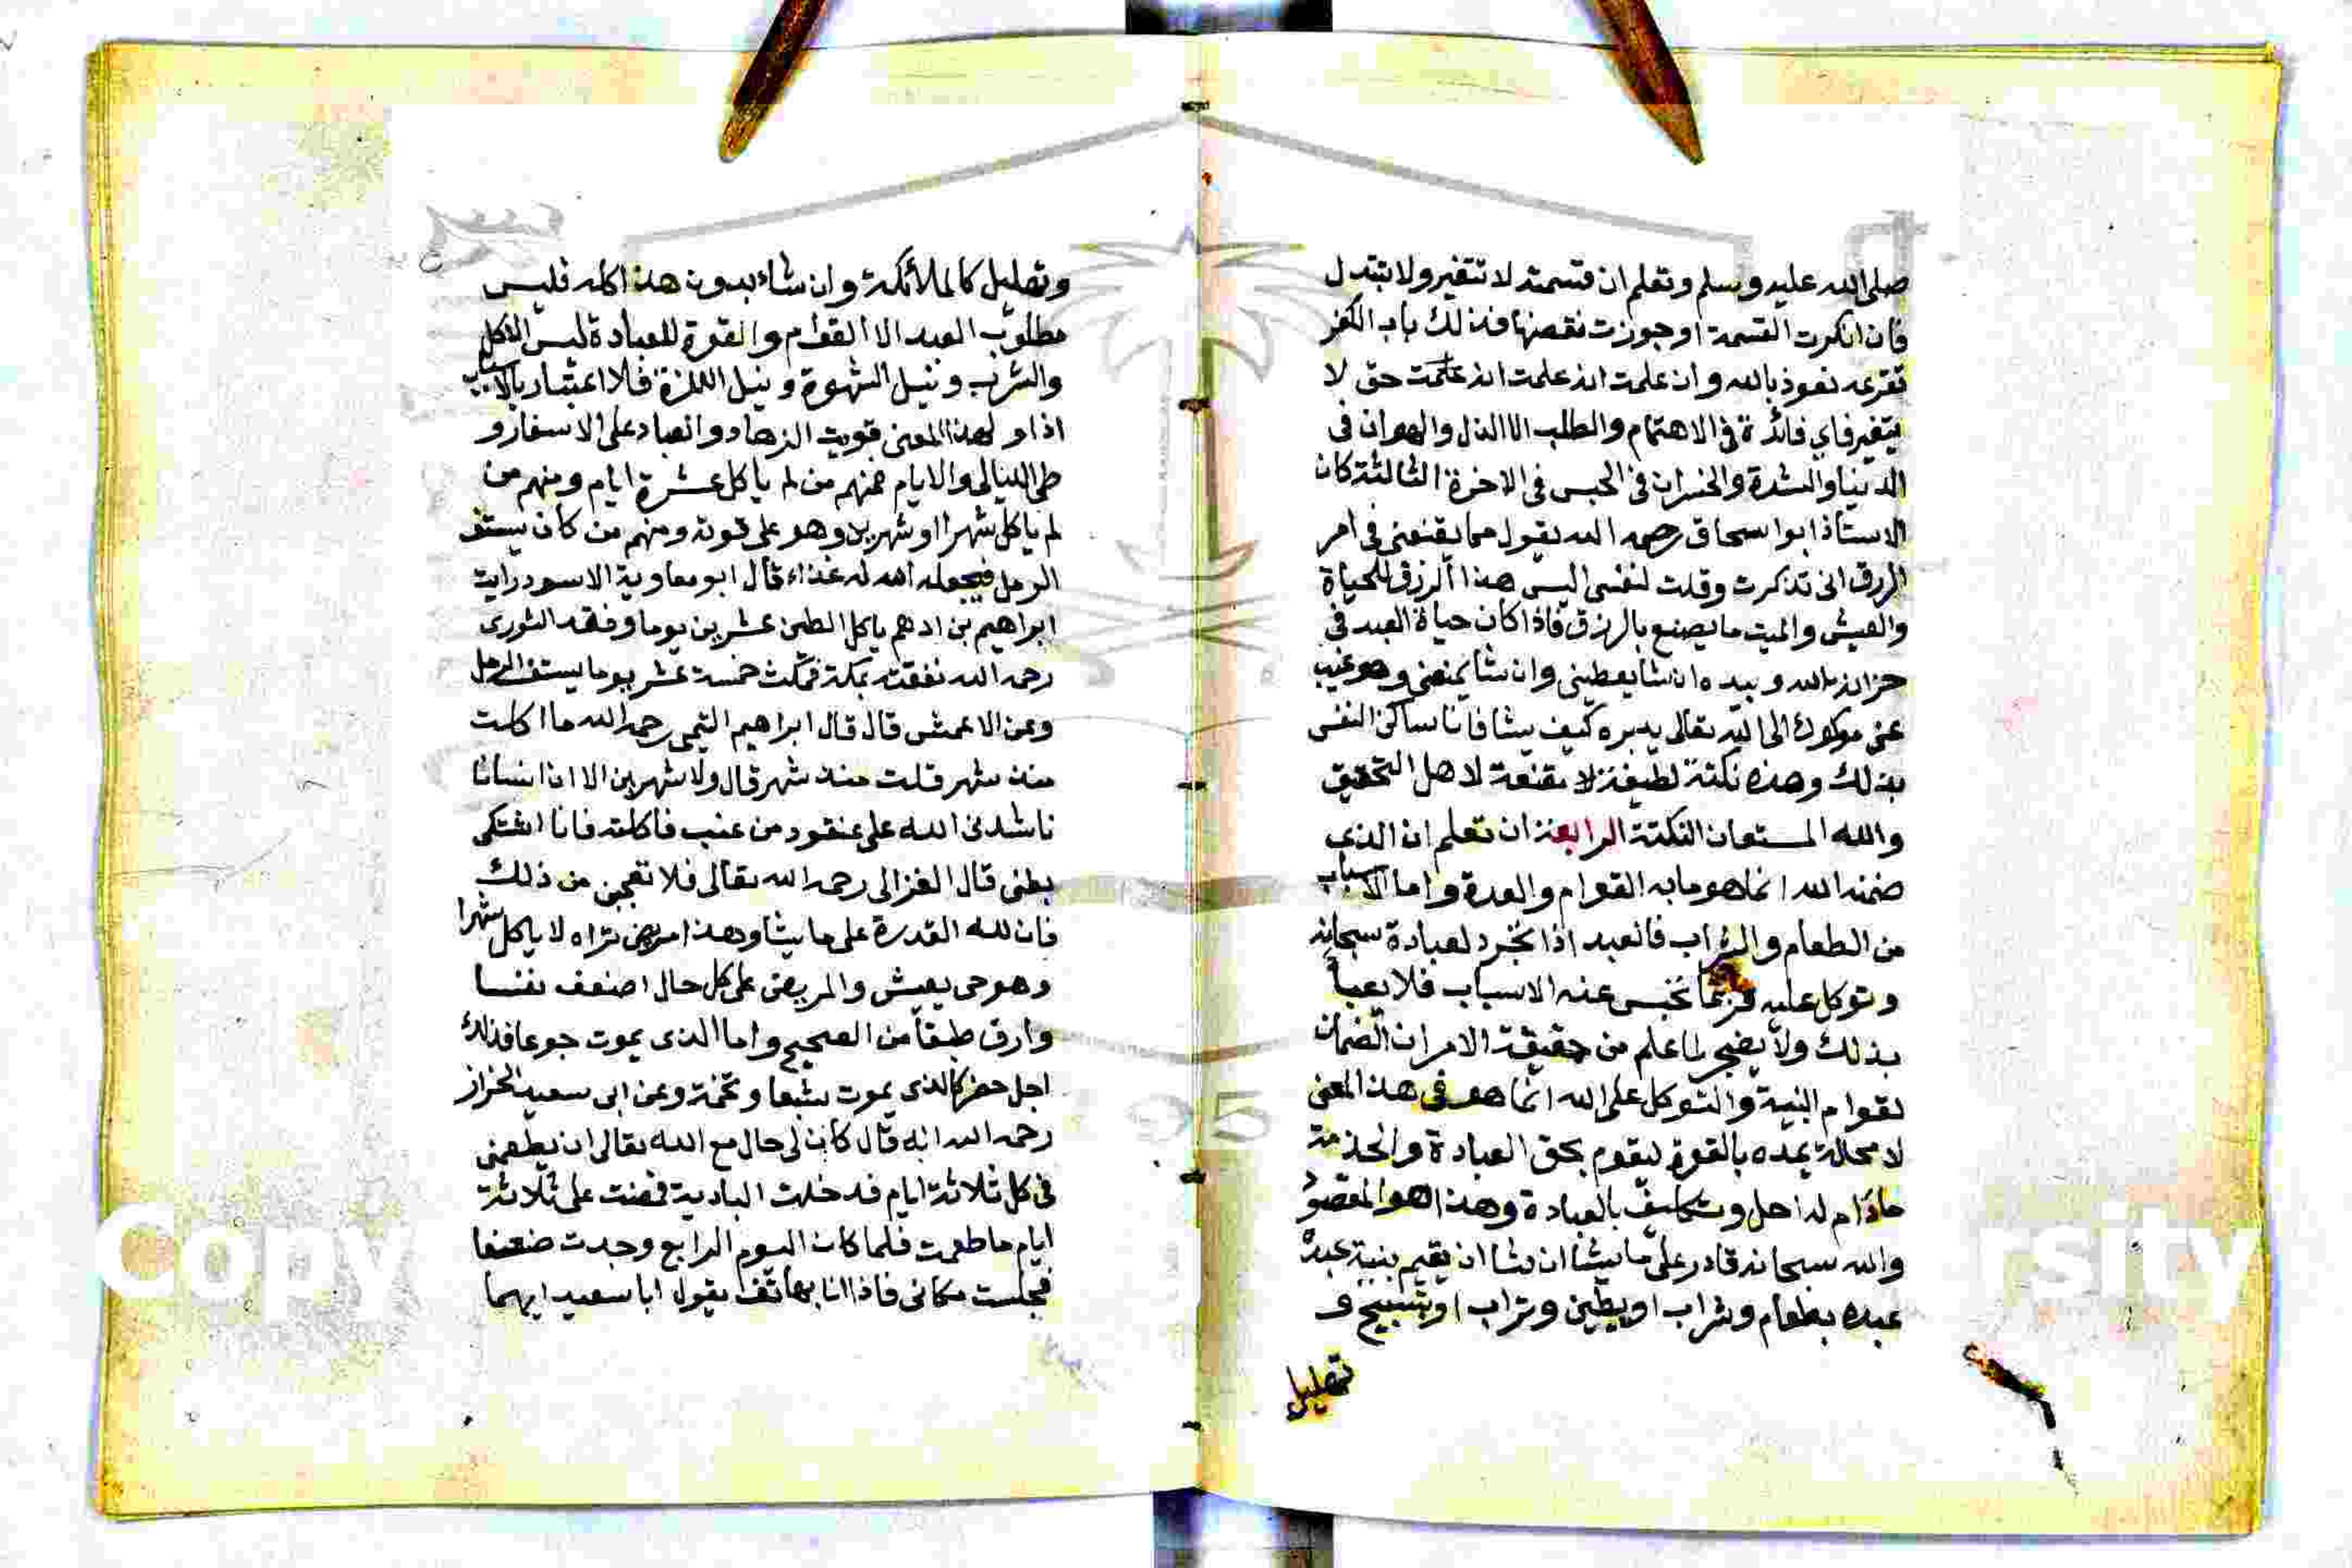 صلى الله عليه وسلم وتعلم ان قسمته لا تتغير ولا تتبدل
فان انكرت القسمة او جوزت نقصنها فذلك باب الكفر
تقرعه نعوذ بالله وان علمت انه علمت انه علمت حق لا
يتغير فاي فائدة في الاهتمام والطلب الا الذل والهوان في
الدنيا والشدة والخسران في الحبس في الاخرة الثالثة كان
الاستاذ ابو اسحاق رحمه الله يقول مما يقنعني في امر
الرزق اني تذكرت وقلت لنفسي اليس هذا الرزق للحياة
والعيش والميت ما يصنع بالرزق فاذا كان حياة العبد في
خزانة الله وبيده ان شا يعطيني وان شا يمنعني وهو غيب
عني موكول الى الله تعالى يدبره كيف يشا فانا ساكن النفس
بذلك وهذه نكتة لطيفة لا مقنعة لاهل التحقيق
والله المستعان النكتة الرابعة ان تعلم ان الذي
ضمنه الله انما هو ما به القوام والعدة واما الاسباب
من الطعام والشراب فالعبد اذا تجرد لعبادة سبحانه
وتوكل عليه فربما تحبس عنه الاسباب فلا يعبأ
بذلك ولا يضجر لما علم من حقيقة الامر ان الضمان
لقوام البنية والتوكل على الله انما هو في هذا المعنى
لا محالة يمده بالقوة ليقوم بحق العبادة والخدمة
مادام له اجل وتكليف بالعبادة وهذا هو المقصود
والله سبحانه قادر على ما يشا ان شا ان يقيم بنية عبده
عبده بطعام وشراب او بطين وتراب او بتسبيح و
تهليل
وتهليل كالملائكة وان شاء بدون هذا كله فليس
مطلوب العبد الا القوام والقوة للعبادة ليس الاكل
والشرب ونيل الشهوة ونيل اللذة فلا اعتبار بالاسباب
اذا و لهذا المعنى قويت الزهاد والعباد على الاسفار و
طي الليالي والايام فمنهم من لم ياكل عشرة ايام ومنهم من
لم ياكل شهرا او شهرين وهو على قوته ومنهم من كان يستف
الرمل فيجعله الله له غذاء قال ابو معاوية الاسود رايت
ابراهيم بن ادهم ياكل الطين عشرين يوما وفقد الثوري
رحمه الله نفقته بمكة فمكث خمسة عشر يوما يستف الرمل
وعن الاعمش قال قال ابراهيم التيمي رحمه الله ما اكلت
منذ شهر قلت منذ شهر قال ولا شهرين الا ان انسانا
ناشدني الله على عنقود من عنب فاكلته فانا اشتكي
بطني قال الغزالي رحمه الله تعالى فلا تعجبن من ذلك
فان لله القدرة على ما يشا وهذا مريض تراه لا ياكل شهرا
وهو حي يعيش والمريض على كل حال اضعف نفسا
وارق طبقا من الصحيح واما الذي يموت جوعا فذلك
اجل حضر كالذي يموت شبعا وتخمة وعن ابي سعيد الخراز
رحمه الله انه قال كان لي حال مع الله تعالى ان يطعمني
في كل ثلاثة ايام فدخلت البادية فمضت علي ثلاثة
ايام ما طعمت فلما كان اليوم الرابع وجدت ضعفا
فجلست مكاني فاذا انا بهاتف يقول ابا سعيد ايهما
Copy
rsity